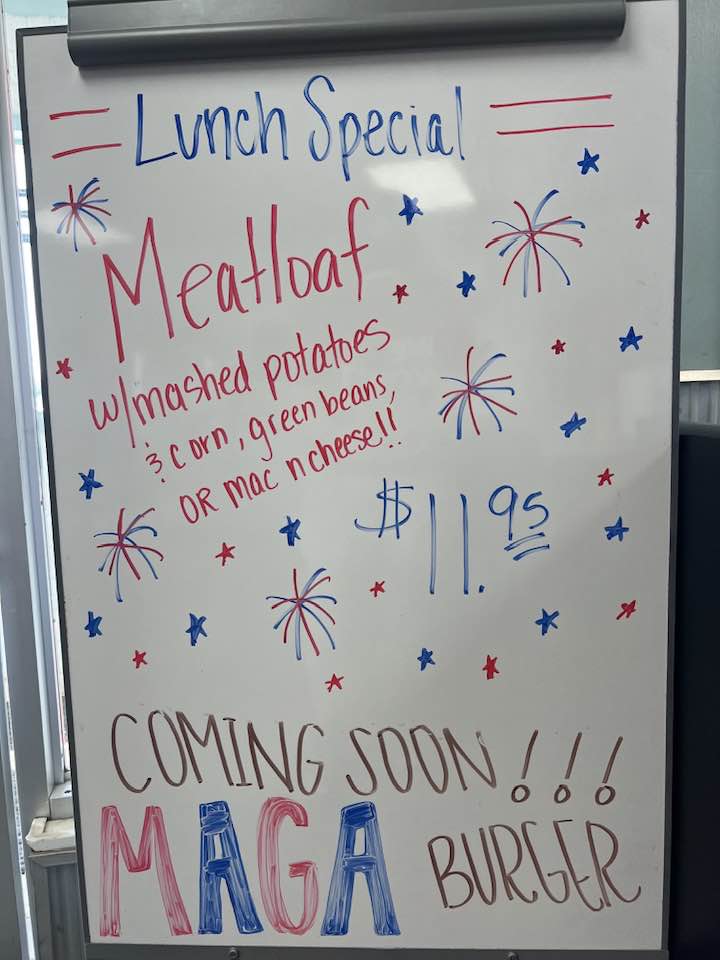 Lunch Special
Meatloaf
w/mashed potatoes
& corn, green beans,
OR mac n cheese!!
$11.95
COMING SOON!!!
MAGA BURGER